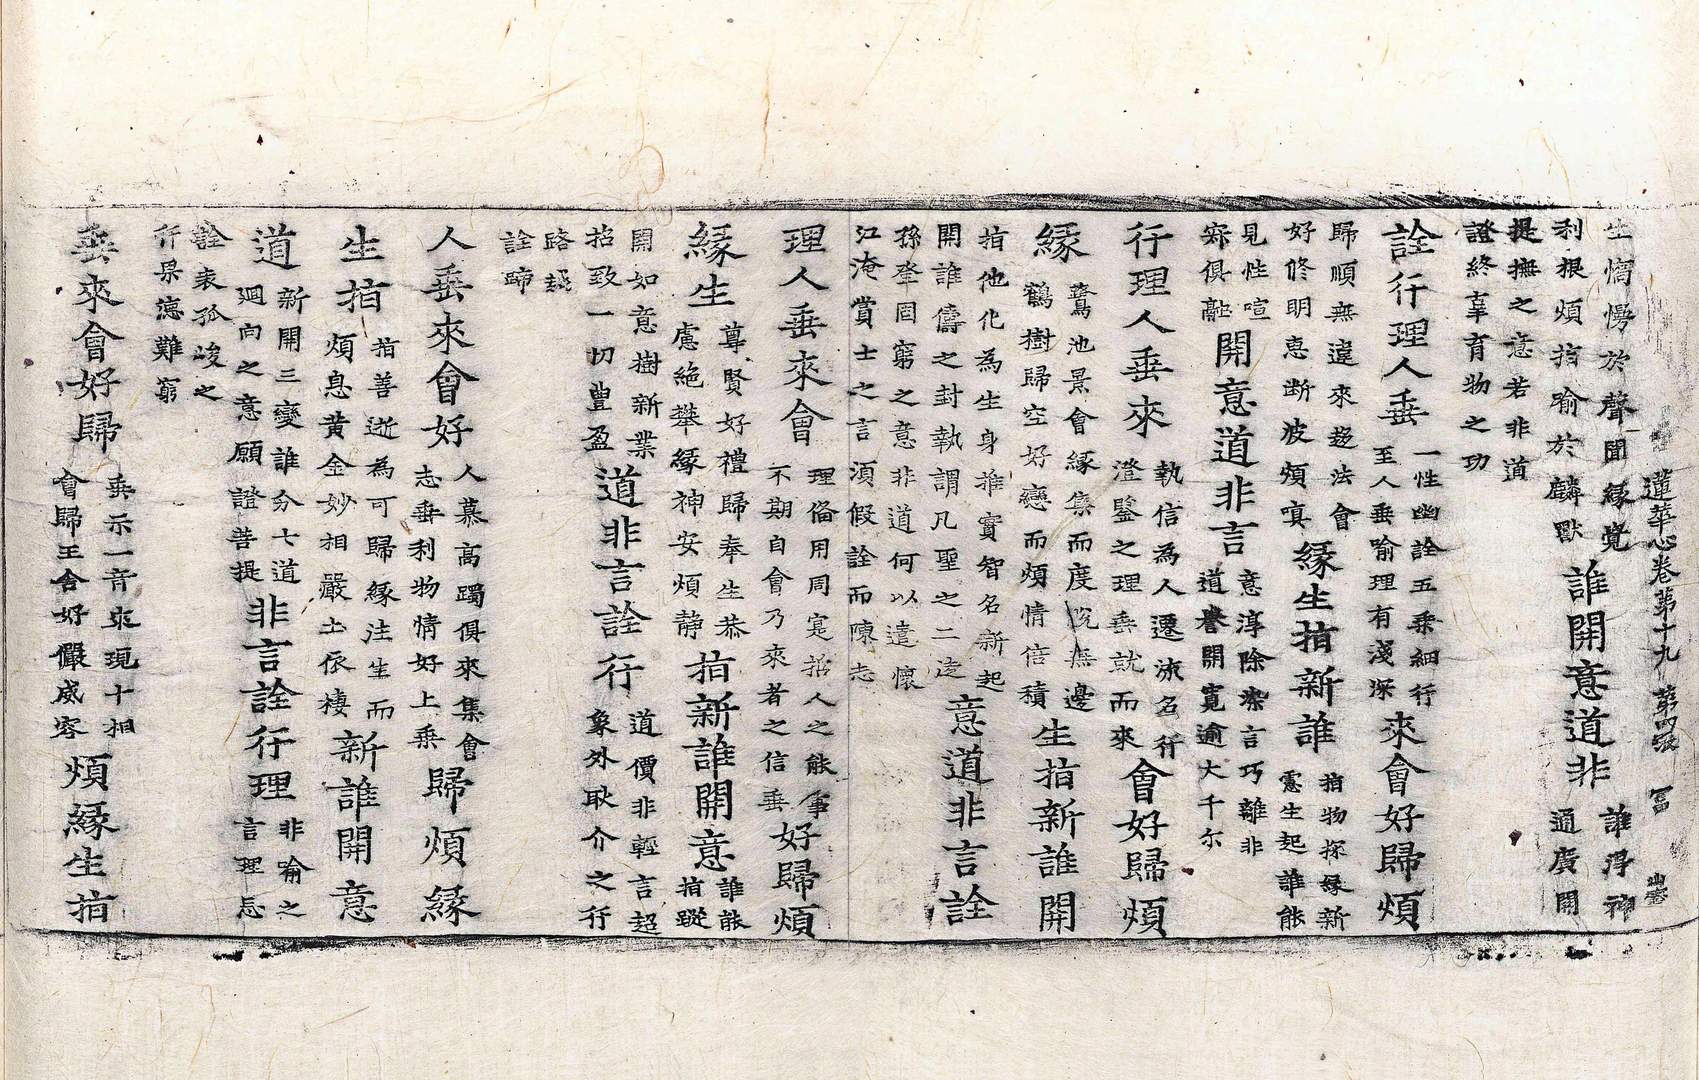 蓮華心卷第十九 第四張 冨
生憍慢於聲聞緣覺
利根煩指喻於麟獸
誰開意道非
誰淨神
通廣開
提撫之意若非道
證終辜育物之功
詮行理人垂
一性幽詮五乘細行
至人垂喻理有淺深
來會好歸煩
歸順無遠來趍法會
好修明恵断彼煩嗔
緣生指新誰
指物探緣新
憲生起誰能
見性喧
寂俱融
開意道非言
意淳除染言巧離非
道眷開寬逾大千尒
行理人垂來
執信為人遷流名行
澄鑒之理垂就而來
會好歸煩
緣
鷲池景會緣集而度況無邊
鶴樹歸空好戀而煩情倍積
生指新誰開
指他化為生身推實智名新起
開誰儔之封執謂凡聖之二途
意道非言詮
孫奎固窮之意非道何以遣懷
江淹賞士之言須假詮而陳志
理人垂來會
理俻用周寔招人之能事
不期自會乃來者之信垂
好歸煩
緣生
尊賢好禮歸奉生恭
慮絕攀緣神安煩静
指新誰開意
誰能
指蹤
開如意樹新業
招致一切豊盈
道非言詮行
道價非輕言超
象外耿介之行
路越
詮蹄
人垂來會好
人慕高躅俱來集會
志垂利物情好上乘
歸煩緣
生指
指善逝為可歸緣注生而
煩息黄金妙相嚴土依棲
新誰開意
道
新開三變誰分七道
廻向之意願證菩提
非言詮行理
非喻之
言理忘
詮表孤峻之
行杲德難窮
垂來會好歸
垂示一音來現十相
會歸王舍好儼威容
煩緣生指